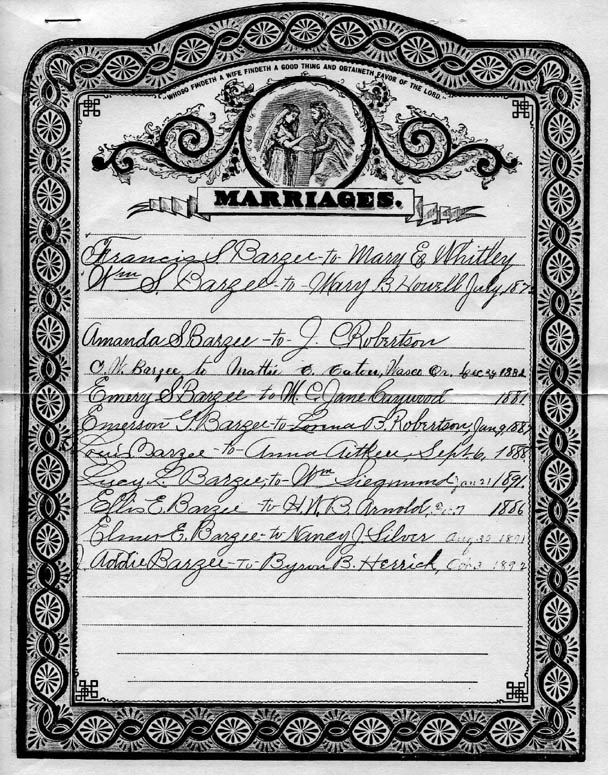 "WHOSO FINDETH A WIFE FINDETH A GOOD THING AND OBTAINETH FAVOR OF THE LORD."
MARRIAGES.
Francis S. Barzee - to - Mary E. Whitley
Wm S. Barzee - to - Mary B. Howell July, 187
Amanda S Barzee - to - J. C Robertson
C. W. Barzee, to Mattie E. Wasco Or. Dec 24 1882
Emery S. Barzee to M. C. Jane Caywood 1881
Emerson G. Barzee - to - Emma F. Robertson, Jan 9, 1887
Louis Barzee - to - Anna Aitken, Sept. 6, 1888
Lucy L. Barzee - to - Wm Siegmund Jan 21 1891
Ellis E Barzee to H. W. B. Arnold, 1886
Elmer E. Barzee - to Nancy J. Silver Aug 30 1891
Addie Barzee - To - Byron B. Herrick, 3 1892